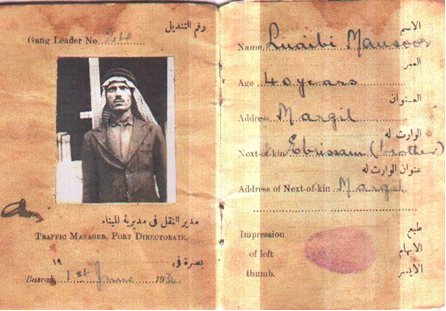 رقم التنديل
Gang Leader No.
مدير النقل في مديرية الميناء
TRAFFIC MANAGER, PORT DIRECTORATE.
بصرة في ١٩
Basrah 1st June 193
الاسم
Name, Luaibi Mansoor
العمر
Age 40 years
العنوان
Address Margil
الوارث له
Next-of-kin Ebrissam (brother)
عنوان الوارث له
Address of Next-of-kin Margil
Impression
of left
thumb.
طبع
الابهام
الايسر